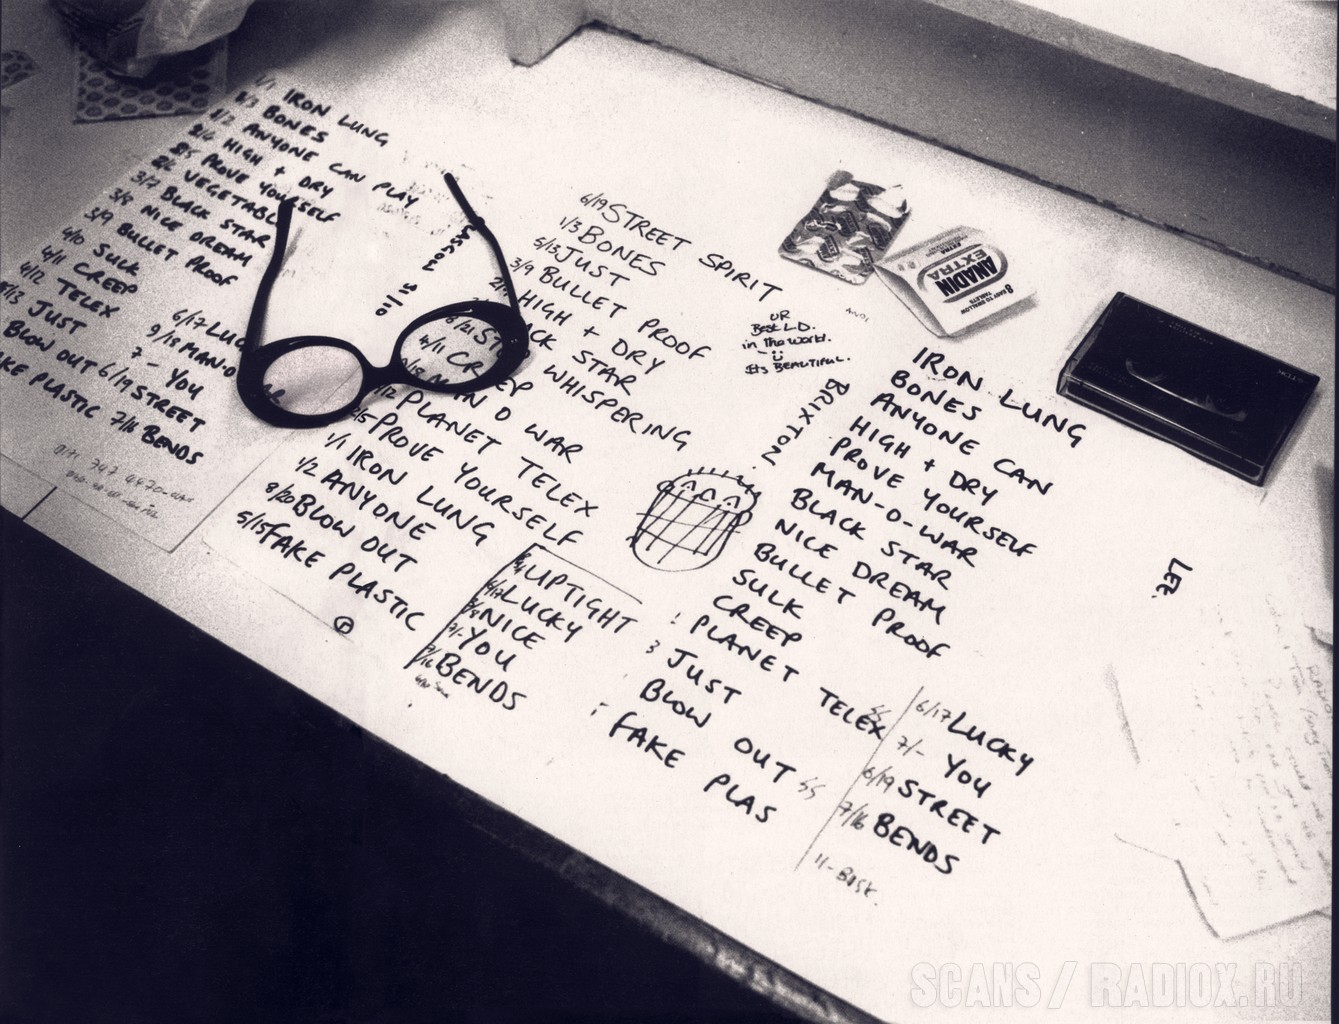 1/1 IRON LUNG
1/3 BONES
1/2 ANYONE CAN PLAY
2/4 HIGH + DRY
2/5 PROVE YOURSELF
VEGETABL
3/7 BLACK STAR
3/8 NICE DREAM
3/9 BULLET PROOF
4/10 SULK
4/11 CREEP
4/12 TELEX
5/13 JUST
BLOW OUT
KE PLASTIC
6/17 LUC
9/18 MAN-O
7 - YOU
6/19 STREET
7/16 BENDS
31/10
6/19 STREET SPIRIT
1/3 BONES
5/13 JUST
3/9 BULLET PROOF
HIGH + DRY
CK STAR
WHISPERING
4/11 CREEP
MAN O WAR
PLANET TELEX
PROVE YOURSELF
1/1 IRON LUNG
1/2 ANYONE
8/20 BLOW OUT
5/15 FAKE PLASTIC
UPTIGHT
LUCKY
NICE
7/- YOU
7/16 BENDS
OR
Best L.D.
in the world.
It's BEAUTIFUL.
8 EASY TO SWALLOW
TABLETS
ANADIN
EXTRA
BRIXTON
IRON LUNG
BONES
ANYONE CAN
HIGH + DRY
PROVE YOURSELF
MAN-O-WAR
BLACK STAR
NICE DREAM
BULLET PROOF
SULK
CREEP
PLANET TELEX
JUST
BLOW OUT
FAKE PLAS
6/17 LUCKY
7/- YOU
6/19 STREET
7/16 BENDS
SCANS / RADIOX.RU